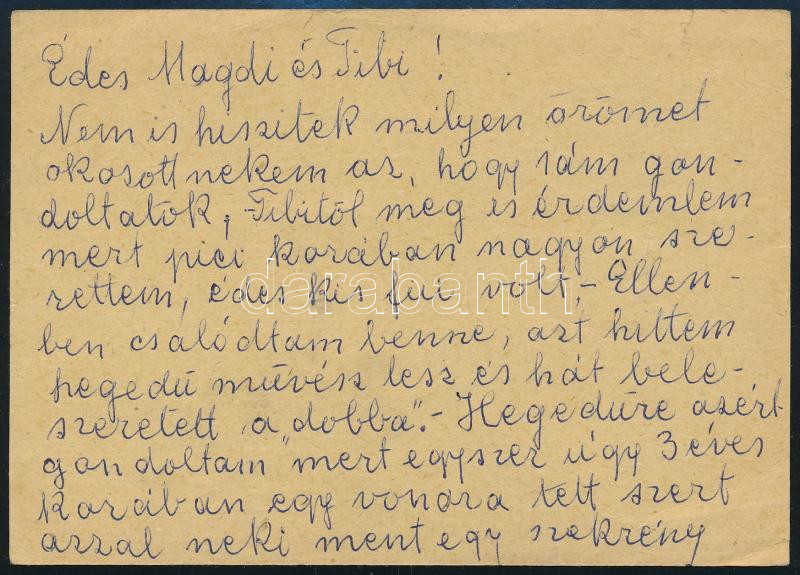 Édes Magdi és Tibi!
Nem is hiszitek milyen örömet
okosott nekem az, hogy rám gon-
doltatok, Tibitől meg is érdemlem
mert pici korában nagyon sze-
rettem, édes kis fui volt, - Ellen-
ben csalódtam benne, azt hittem
hegedü müvész lesz és hát bele-
szeretett a „dobba". - Hegedüre azért
gondoltam "mert egyszer úgy 3 éves
korában egy vonora tett szert
azzal neki ment egy szekrény
darabanth.com